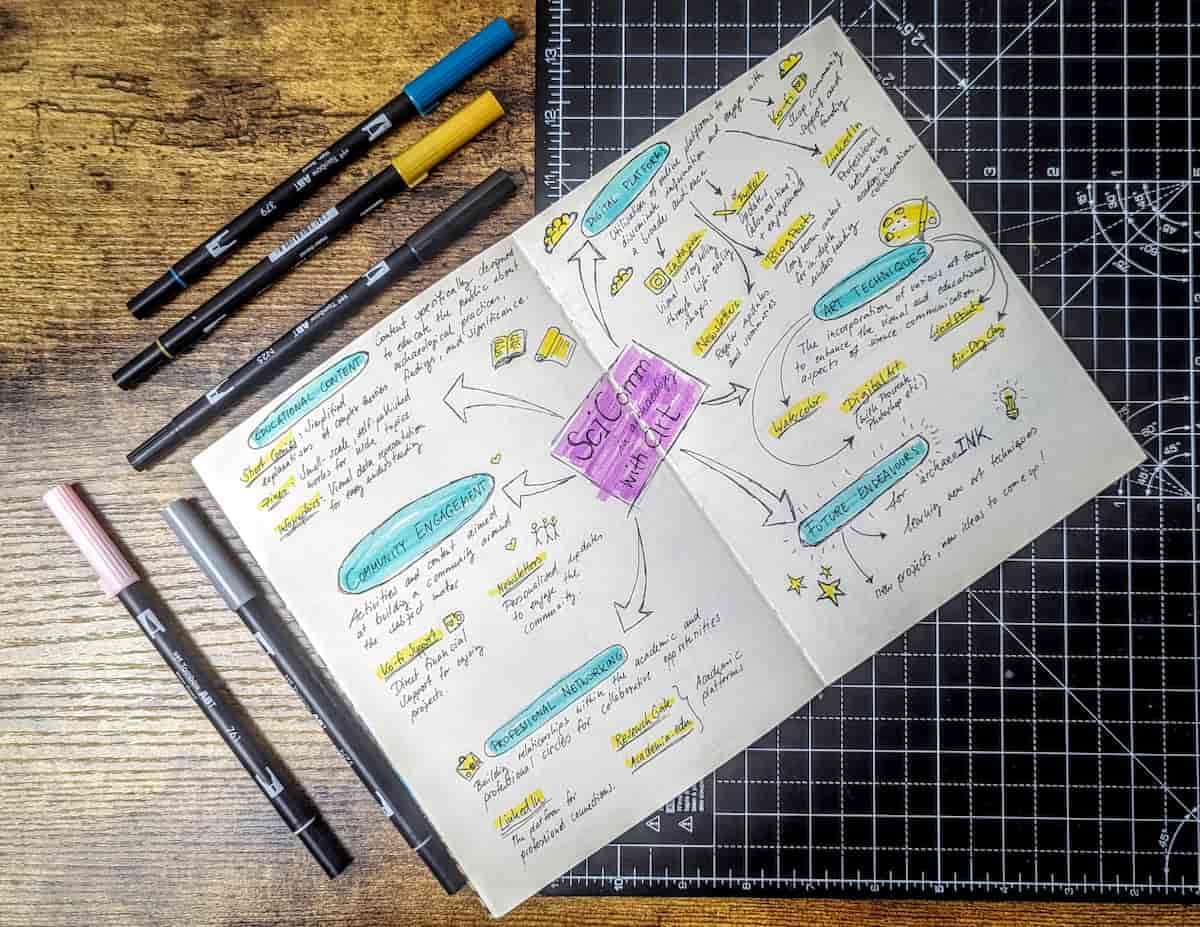 SciComm
in archaeology
with art
DIGITAL PLATFORMS
Utilisation of online platforms to
disseminate information and engage with
a broader audience
Ko-fi
Shop, community
support and
funding
LinkedIn
Professional
networking +
academic
collaborations
updates
(also real-time!)
+ engagement
Blog Posts
long form content
for in-depth
Instagram
Visual storytelling
through high-quality
images.
Newsletter
Regular updates
and summaries
ART TECHNIQUES
The incorporation of various art forms
to enhance the visual and educational
aspects of science communication.
Watercolor
Digital Art
(with Procreate,
Photoshop etc.)
Air-Dry Clay
FUTURE ENDEAVOURS
for archaeoINK
learning new art techniques
new projects, new ideas to come up!
EDUCATIONAL CONTENT
Content specifically designed
to educate the public about
archaeological practices,
findings, and significance.
Short Comics, simplified
explanations of complex theories
Zines: Small-scale, self-published
works for wider topics
Visual data representation
for easy understanding
COMMUNITY ENGAGEMENT
Activities and content aimed
at building a community around
the subject matter
Newsletters
Personalised updates
to engage the
community.
Ko-fi Support
Direct financial
support for ongoing
projects.
PROFESSIONAL NETWORKING
Building relationships within the academic and
professional circles for collaborative opportunities
Research Gate
Academia.edu
Academic
platforms
LinkedIn
The platform for
professional connections.
Tombow ABT
379
Tombow ABT
N25
Tombow ABT
761